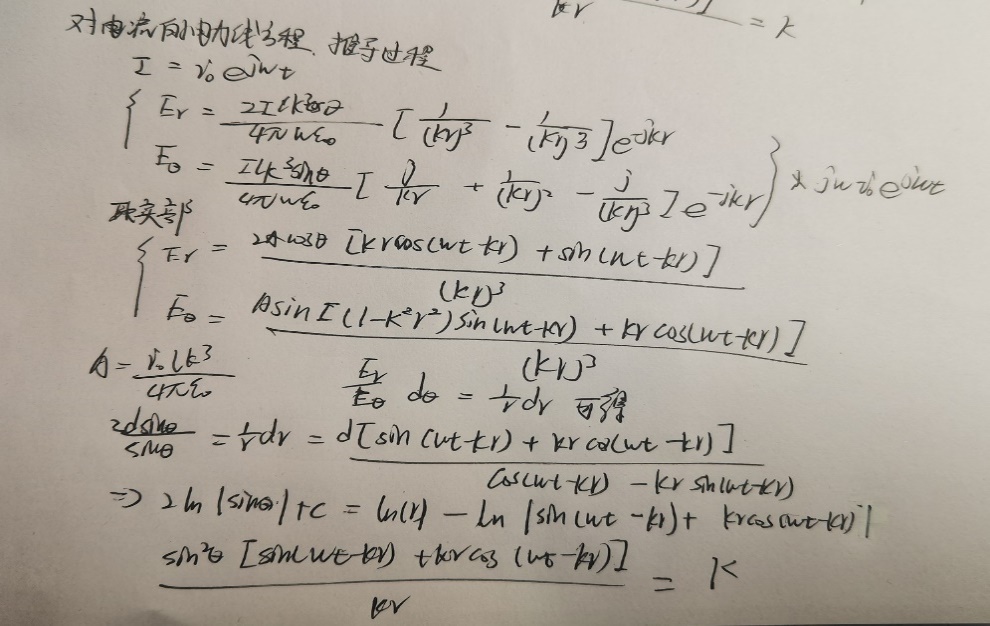 kr = K
对电流向小电力线方程、推导过程
I = i₀ e^{jωt}
E_r = 2Ilk³cosθ / 4πωε₀ [ 1/(kr)³ - 1/(kr)³ ] e^{-jkr}
E_θ = Ilk³sinθ / 4πωε₀ [ j/kr + 1/(kr)² - j/(kr)³ ] e^{-jkr} } × jωi₀e^{jωt}
取实部
E_r = 2Acosθ [krcos(ωt-kr) + sin(ωt-kr)] / (kr)³
E_θ = Asin[(1-k²r²)sin(ωt-kr) + kr cos(ωt-kr)] / (kr)³
A = i₀lk³ / 4πε₀   E_r/E_θ dθ = 1/r dr 可得
2dsinθ / sinθ = 1/r dr = d[sin(ωt-kr) + kr cos(ωt-kr)] / cos(ωt-kr) - kr sin(ωt-kr)
⇒ 2ln|sinθ|+c = ln(r) - ln|sin(ωt-kr) + krcos(ωt-kr)|
sin²θ [sin(ωt-kr) + krcos(ωt-kr)] / kr = K